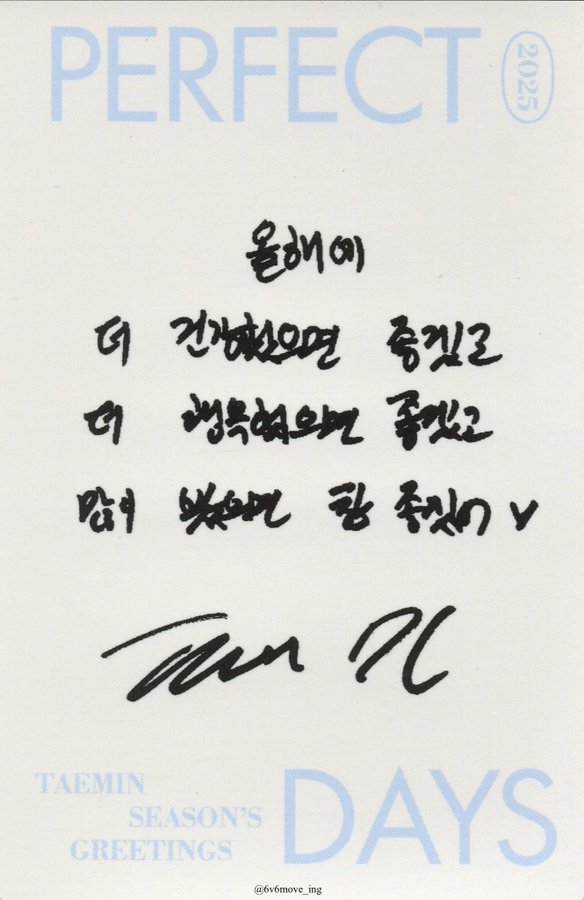 PERFECT 2025
올해에
더 건강했으면 좋겠고
더 행복했으면 좋겠고
많이 봤으면 참 좋겠어 ♡
TAEMIN
SEASON'S
GREETINGS
DAYS
@6v6move_ing